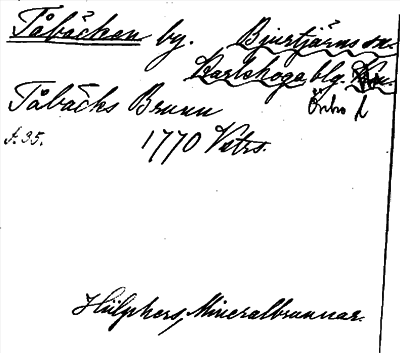 Tåbäcken by. Bjurtjärns sn.
Karlskoga blg.
Örebro l
Tåbäcks Brunn
t. 35. 1770 Vstrs.
Hülphers, Mineralbrunnar.